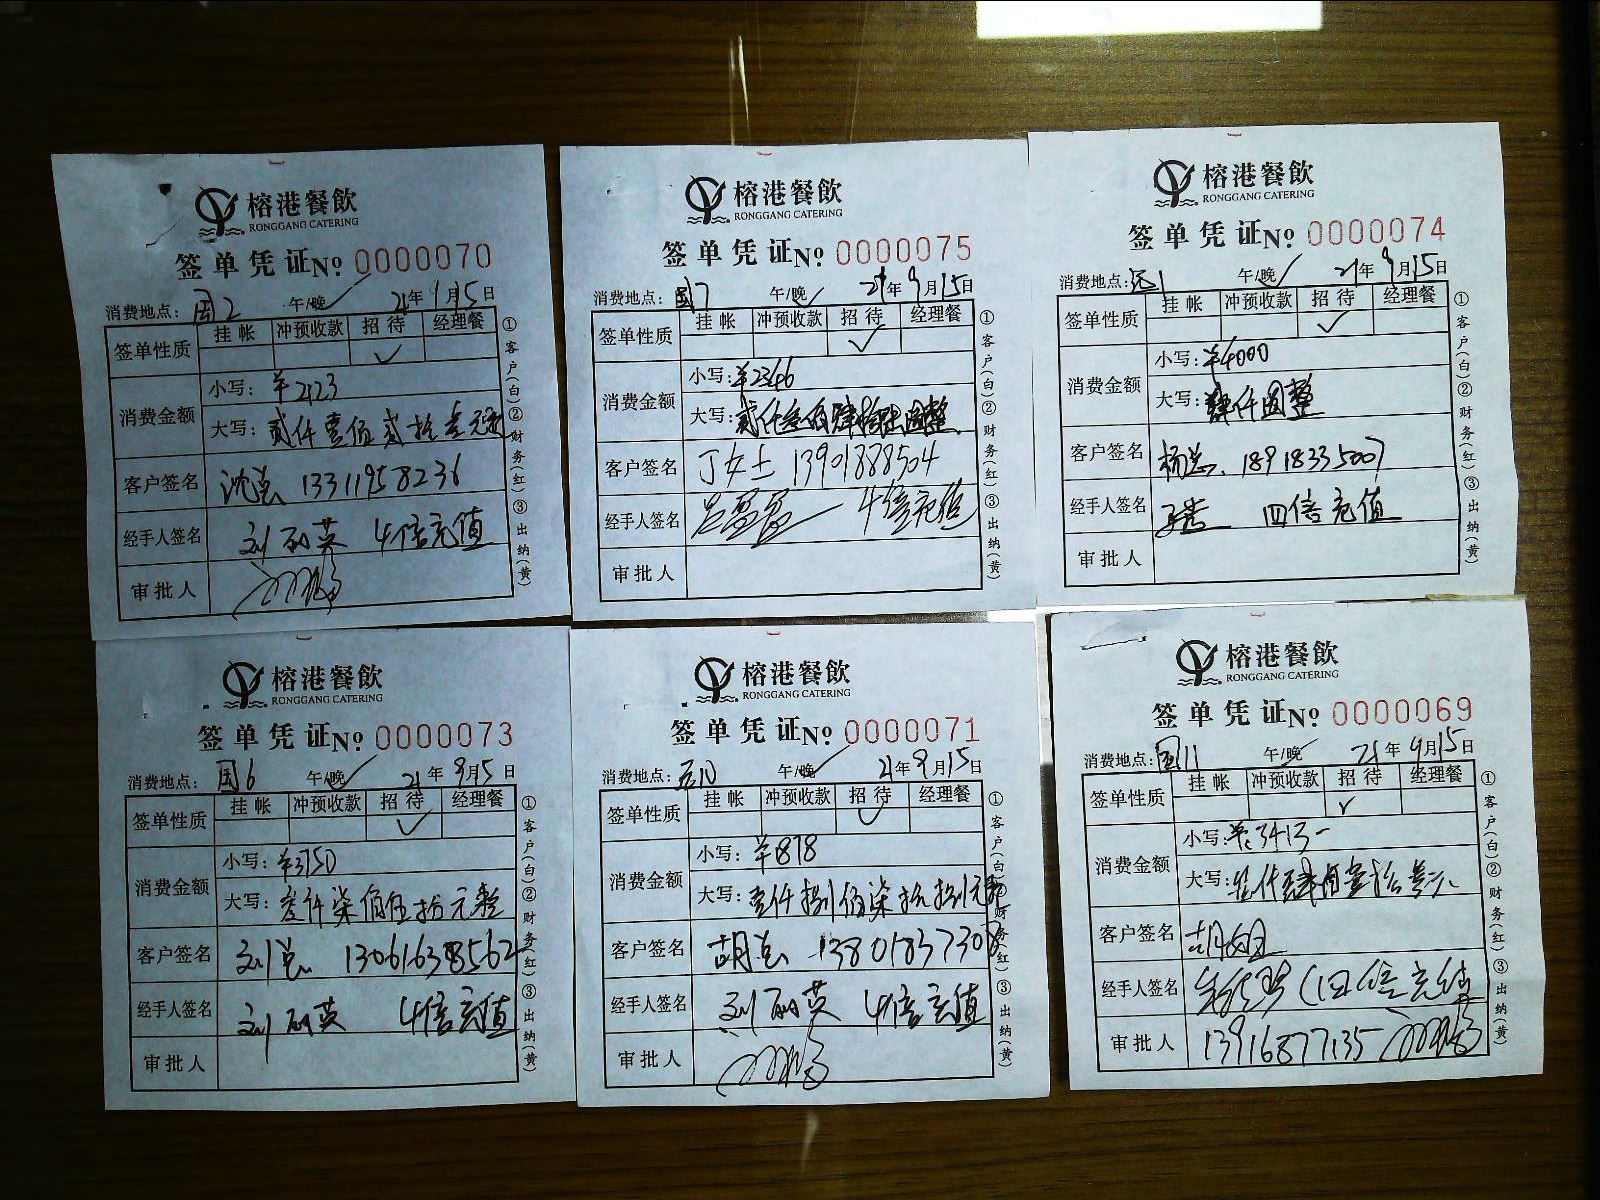 榕港餐飲
RONGGANG CATERING
签单凭证 No 0000070
消费地点：国2 午/晚 ✓ 21年9月15日
签单性质 挂帐 冲预收款 招待 经理餐
✓
消费金额 小写：¥2123
大写：贰仟壹佰贰拾叁元整
客户签名 沈总 13311958236
经手人签名 刘丽英 4倍充值
审批人
①客户(白)②财务(红)③出纳(黄)
榕港餐飲
RONGGANG CATERING
签单凭证 No 0000075
消费地点：国7 午/晚 ✓ 21年9月15日
签单性质 挂帐 冲预收款 招待 经理餐
✓
消费金额 小写：¥2346
大写：贰仟叁佰肆拾陆圆整
客户签名 丁女士 13901888504
经手人签名 吕盈盈 4倍充值
审批人
①客户(白)②财务(红)③出纳(黄)
榕港餐飲
RONGGANG CATERING
签单凭证 No 0000074
消费地点：远1 午/晚 ✓ 21年9月15日
签单性质 挂帐 冲预收款 招待 经理餐
✓
消费金额 小写：¥4000
大写：肆仟圆整
客户签名 杨总 18918335007
经手人签名 四倍充值
审批人
①客户(白)②财务(红)③出纳(黄)
榕港餐飲
RONGGANG CATERING
签单凭证 No 0000073
消费地点：国6 午/晚 ✓ 21年9月5日
签单性质 挂帐 冲预收款 招待 经理餐
✓
消费金额 小写：¥3750
大写：叁仟柒佰伍拾元整
客户签名 刘总 13061638562
经手人签名 刘丽英 4倍充值
审批人
①客户(白)②财务(红)③出纳(黄)
榕港餐飲
RONGGANG CATERING
签单凭证 No 0000071
消费地点：吾10 午/晚 ✓ 21年9月15日
签单性质 挂帐 冲预收款 招待 经理餐
✓
消费金额 小写：¥1878
大写：壹仟捌佰柒拾捌元整
客户签名 胡总 13801837308
经手人签名 刘丽英 4倍充值
审批人
①客户(白)②财务(红)③出纳(黄)
榕港餐飲
RONGGANG CATERING
签单凭证 No 0000069
消费地点：国11 午/晚 ✓ 21年9月15日
签单性质 挂帐 冲预收款 招待 经理餐
✓
消费金额 小写：¥：3413-
大写：叁仟肆佰壹拾叁元
客户签名 胡姐
经手人签名 (四倍充值
审批人 13916877135
①客户(白)②财务(红)③出纳(黄)